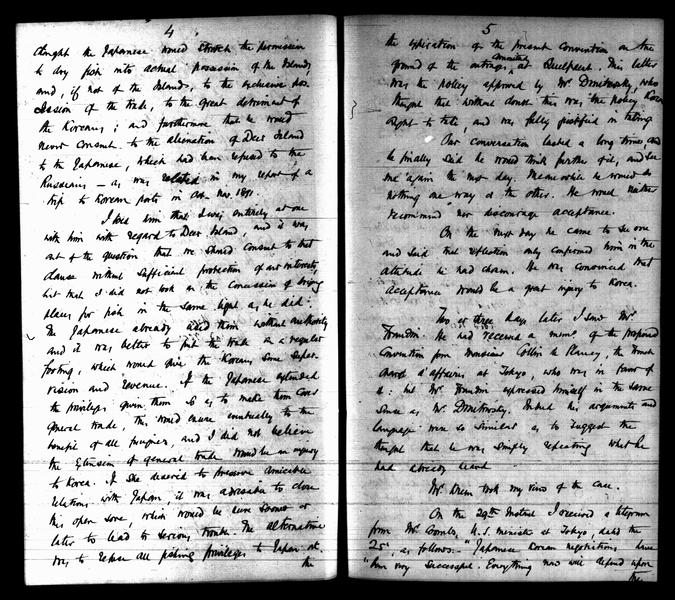 4
thought the Japanese would stretch the permission
to dry fish into actual possession of the Islands,
and, if not of the Islands, to the exclusive pos
session of the trade, to the great detriment of
the Koreans; and furthermore that he would
never consent to the alienation of Deer Island
to the Japanese, which had been refused to the
Russians — as was related in my report of a
trip to Korean ports in Oct. Nov. 1891.
I told him that I was entirely at one
with him with regard to Deer Island, and it was
out of the question that we should consent to that
clause without sufficient protection of our interests,
but that I did not look on the Concession of drying
places for fish in the same light as he did.
The Japanese already used them without authority
and it was better to put the trade on a regular
footing, which would give the Koreans some super-
vision and revenue. If the Japanese extended
the privileges given them so as to make them cover
general trade, this would enure eventually to the
benefit of all foreigners, and I did not believe
the extension of general trade would be an injury
to Korea. If she desired to preserve amicable
relations with Japan it was advisable to close
this open sore, which would be sure sooner or
later to lead to serious trouble. The alternative
was to refuse all fishing privileges to Japan at
the
5
the expiration of the present Convention on the
ground of the outrages committed at Quelpaert. This latter
was the policy approved by Mr. Dmitrevsky, who
thought that without doubt this was the policy Korea
ought to take, and was fully justified in taking.
Our conversation lasted a long time, and
he finally said he would think further of it, and see
me again the next day. Meanwhile he would do
nothing one way or the other. He would neither
recommend nor discourage acceptance.
On the next day he came to see me
and said that reflection only confirmed him in the
attitude he had chosen. He was convinced that
acceptance would be a great injury to Korea.
Two or three days later I saw Mr.
Frandin. He had received a memo. of the proposed
Convention from Monsieur Collin de Plancy, the French
chargé d'affaires at Tokyo, who was in favor of
it: but Mr. Frandin expressed himself in the same
sense as Mr. Dmitrevsky. Indeed his arguments and
language were so similar as to suggest the
thought that he was simply repeating what he
had already heard.
Mr. Krien took my view of the case.
On the 29th Instant I received a telegram
from Mr. Coombs, U.S. Minister at Tokyo, dated the
25th, as follows:— "Japanese Korean negotiations have
"been very successful. Everything now will depend upon
the